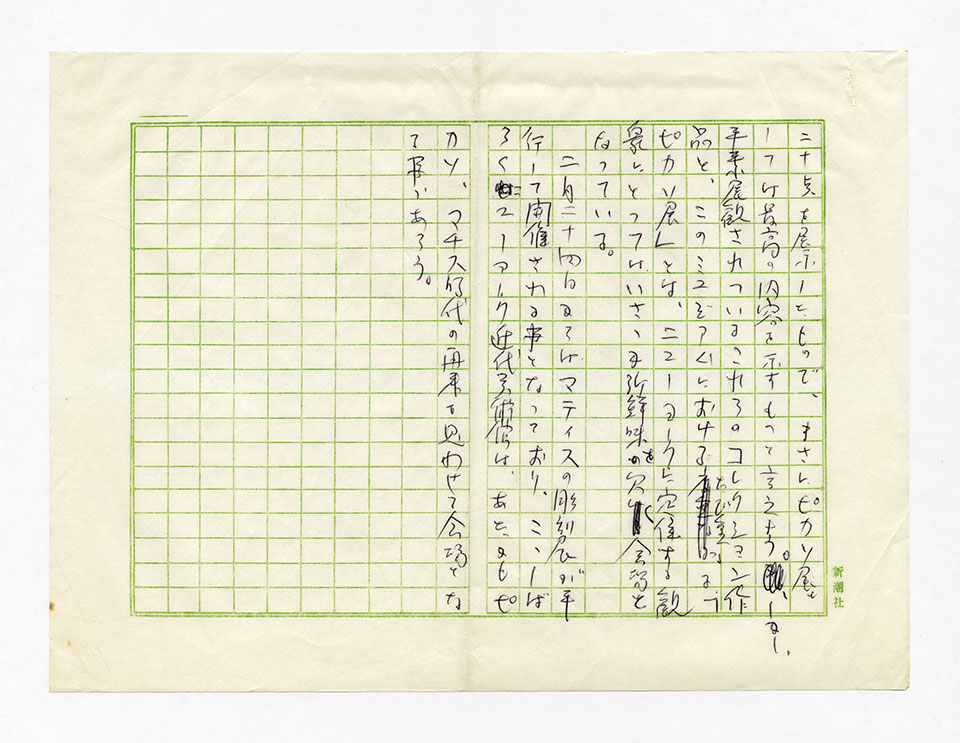 二十点を展示したもので、まさにピカソ展と
しては最高の内容を示すものと言えよう。しかし、
平素展観されているこれらのコレクション作
品と、このミュゼアムにおける たび重なる「
ピカソ展」とは、ニューヨークに定住する観
衆にとってはいささか新鮮味を欠く会場と
なっている。
二月二十四日からはマティスの彫刻展が平
行して開催される事となっており、ここしば
らくニューヨーク近代美術館は、あたかもピ
カソ、マチス時代の再来を思わせて会場とな
る事であろう。
新潮社